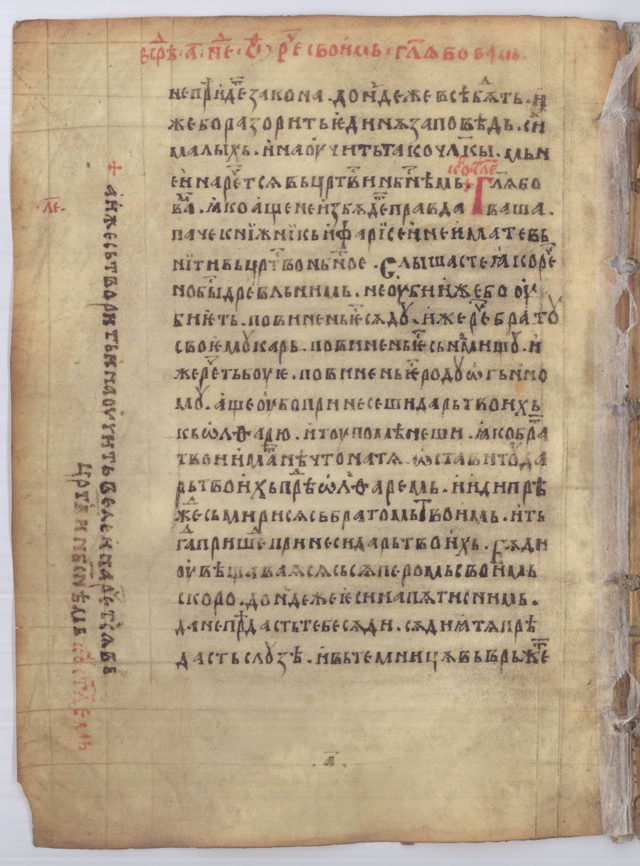 в срⷣѣ · а҃ · нⷣе · рⷱе своимь · гл҃ѧ бо вамь ·
не прⷤиⷣде закона . дондеже всѣ бѧⷣть . и
же бо разорить единѧ заповѣдь . сї
малыхь . и наоучить тако чл҃кы . мьн
еи нарⷱетсѧ вь црⷭтви нбⷭнѣмь . Гл҃ѧ бо
ва . ꙗко аще не изьбѧⷣде правда ваша .
паче книжникь и фарисеи не имате вь
нїти вь црⷭтво нбⷭное . Слышасте ꙗко рⷱе
но быⷭ древльнимь . не оубии иже бо оу
биеть . повинень еⷭ сѧдꙋ . иже рⷱе братꙋ
своемꙋ карь . повинень еⷭ сьнмищꙋ . и
же рⷱеть боуе . повинень еⷭ родꙋ ѡгньно
мꙋ . аще оубо принесеши дарь твоихь
кь ѡлтарю . и тоу помѣнеши . ꙗко браⷮ
твои иматⷭ нѣчто на тѧ ѡстави тоⷹ да
рь твоихь прⷣѣ ѡлтаремь . и иди прѣ
жⷣе сьмирисѧ сь братомь твоимь . и ть
гⷣа пришеⷣ принеси дарь твоихь . Бѧди
оувѣщаваѧсѧ сь сѧперомь своимь
скоро . дондеже еси на пѧти с нимь .
да не прⷣѣдасть тебе сѧди . сѧди ꙗ тѧ прѣ
дасть слоузѣ . и вь темницѧ вьврьжⷷе
·л҃е·
+ а иже сьтворить и наоучить велеи нарⷱетⷭ вь
црⷭтви нбⷭнѣмь
· а҃ ·